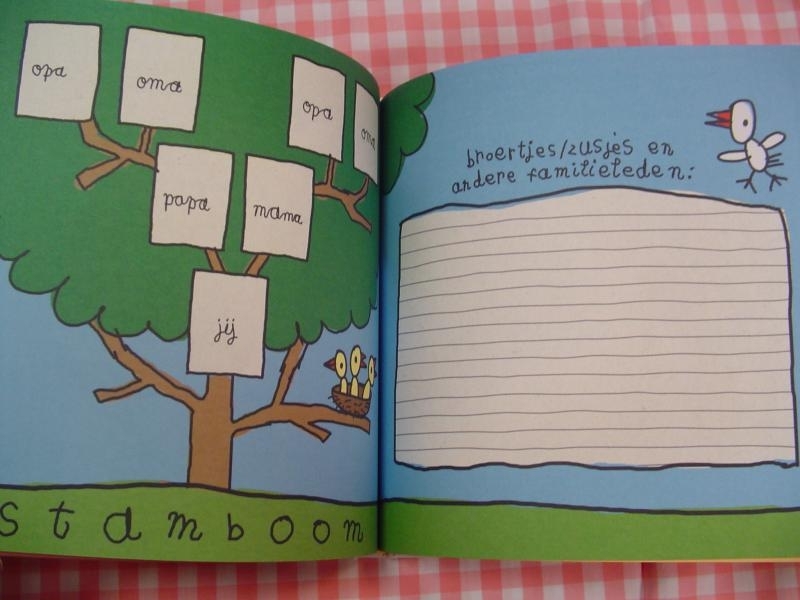 opa
oma
opa
oma
papa
mama
jij
stamboom
broertjes/zusjes en
andere familieleden: